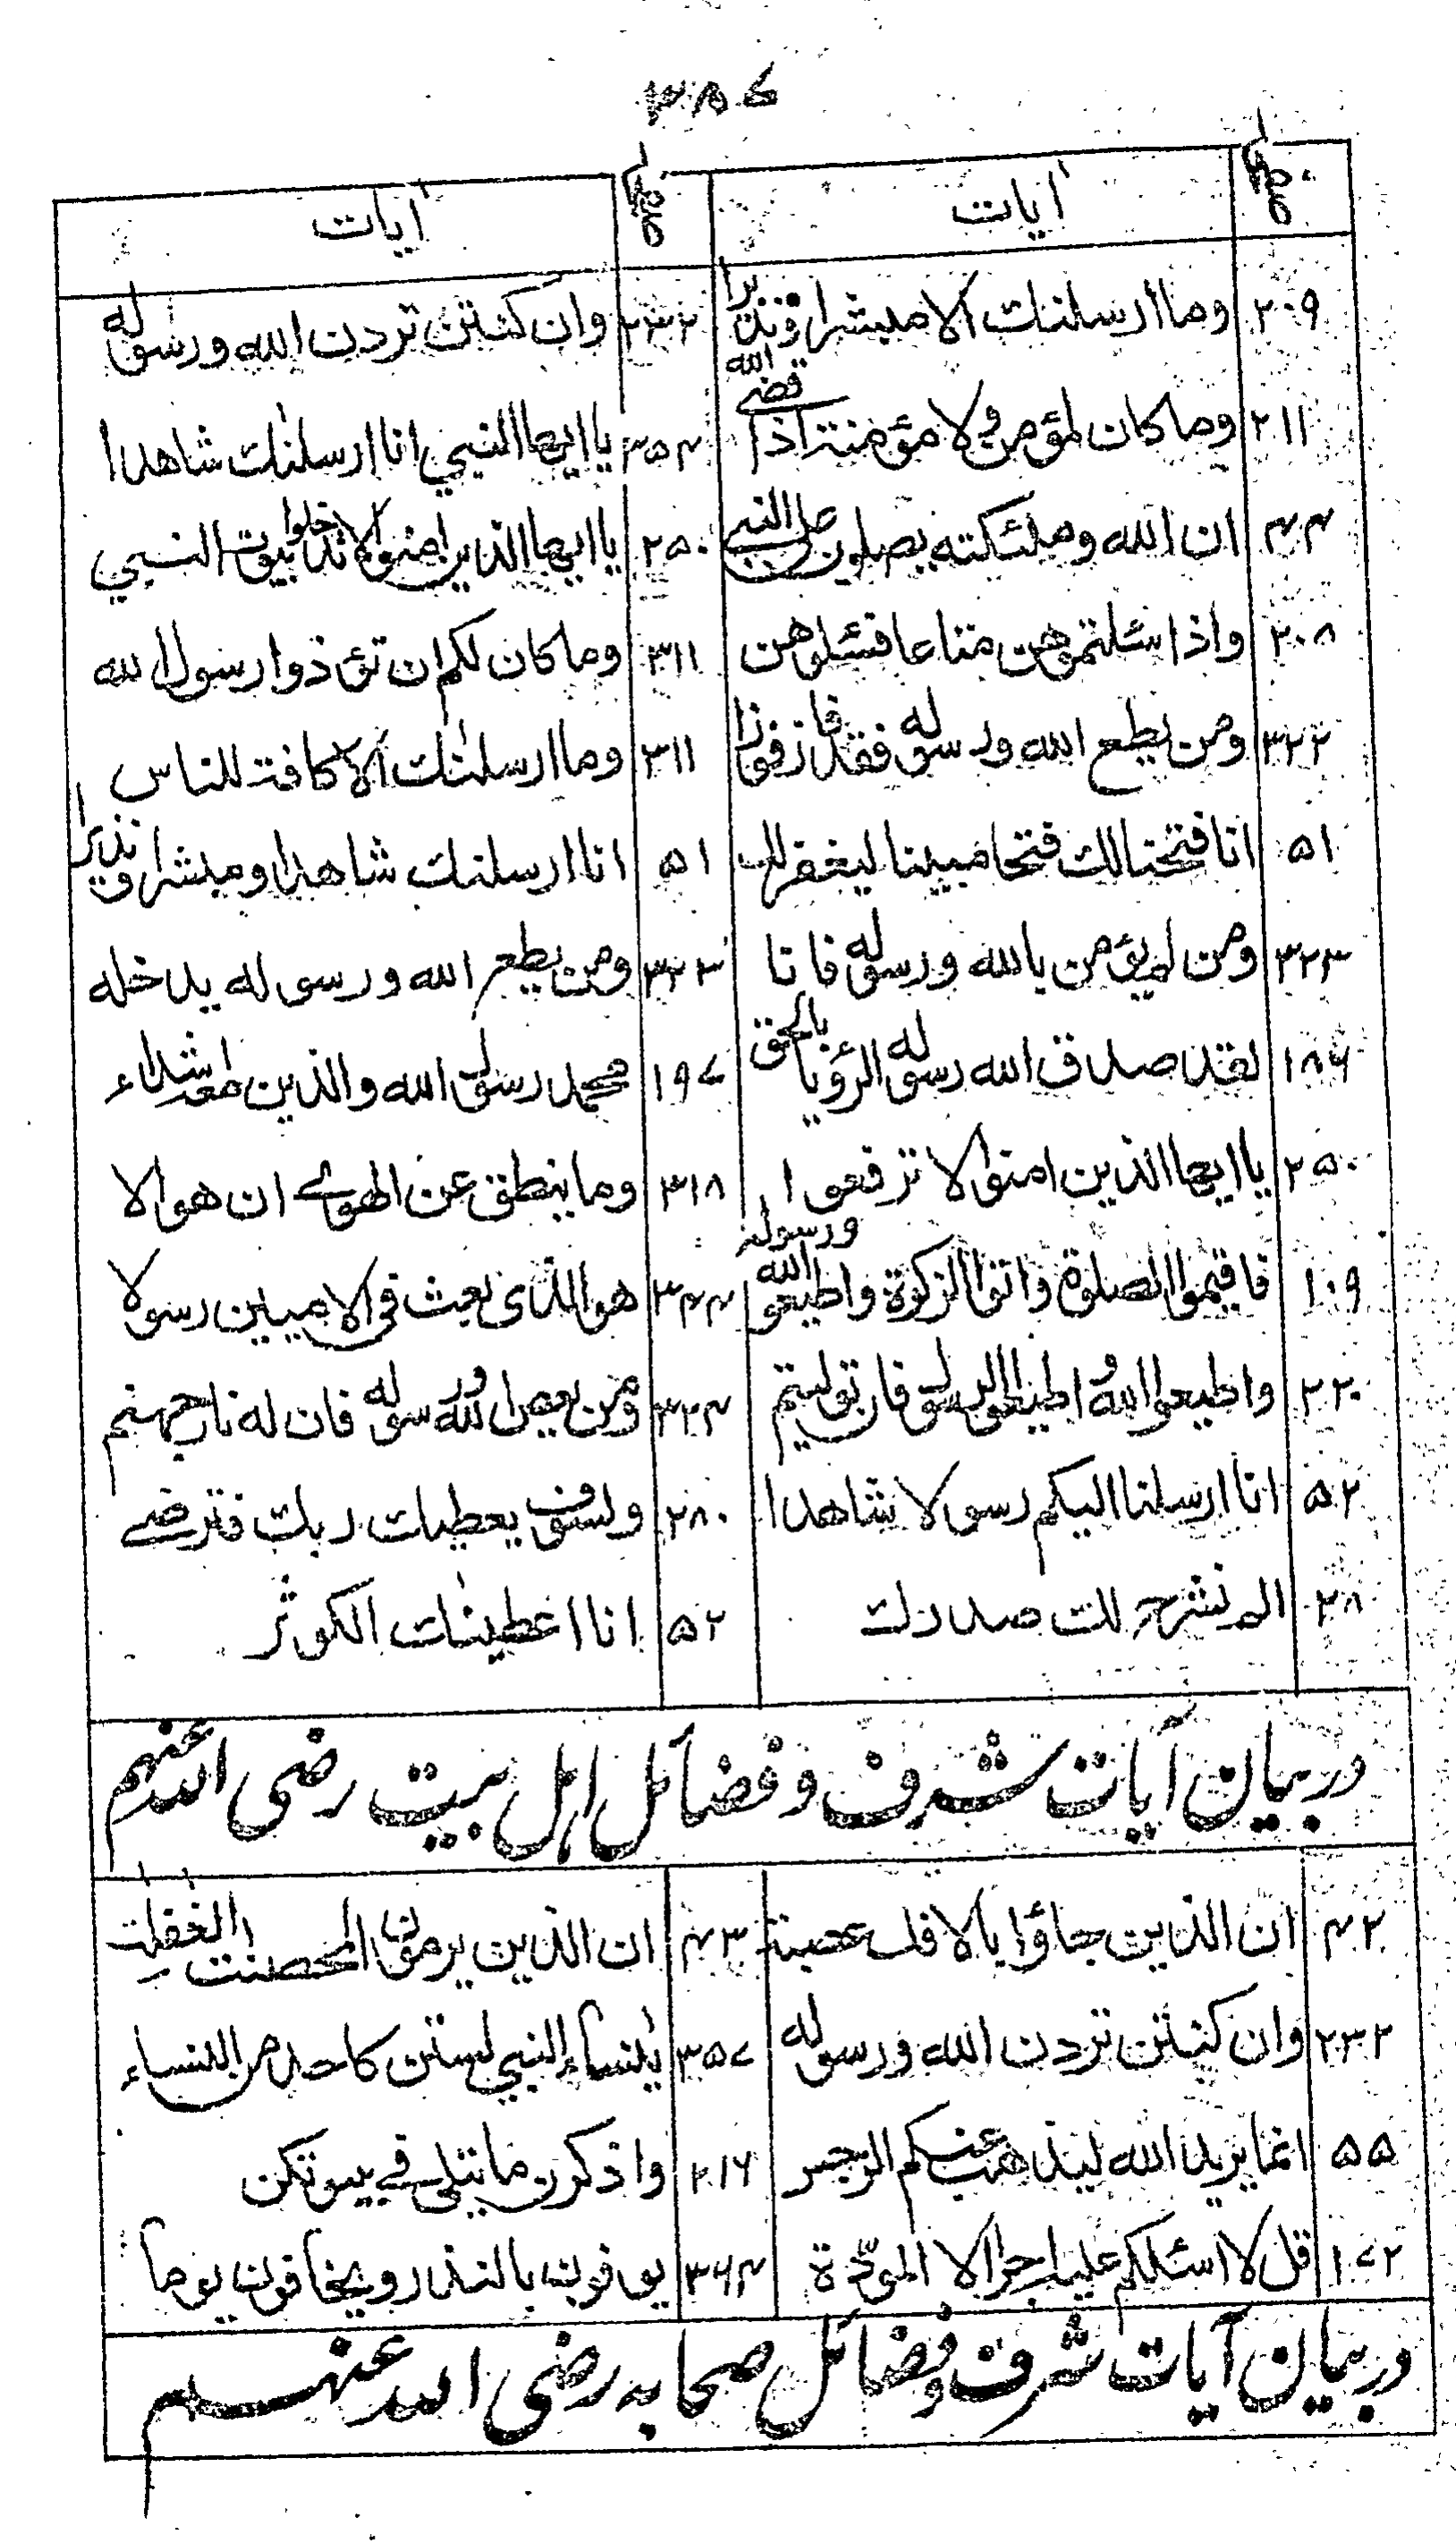 ۳۸۷
صفحہ آیات صفحہ آیات
۲۰۹ وما ارسلنك الا مبشرا ونذيرا ۲۳۲ وان كنتن تردن الله ورسوله
۲۱۱ وما كان لمؤمن ولا مؤمنة اذا قضے الله ۳۵۴ يا ايها النبي انا ارسلنك شاهدا
۴۴ ان الله وملئكته يصلون على النبي ۲۵۰ يا ايها الذين امنوا لا تدخلوا بيوت النبي
۲۰۸ واذا سئلتموهن متاعا فسئلوهن ۳۱۱ وما كان لكم ان تؤذوا رسول الله
۳۲۲ ومن يطع الله ورسوله فقد فاز فوزا ۳۱۱ وما ارسلنك الا كافة للناس
۵۱ انا فتحنا لك فتحا مبينا ليغفر لك ۵۱ انا ارسلنك شاهدا ومبشرا ونذيرا
۳۲۳ ومن لم يؤمن بالله ورسوله فانا ۳۲۳ ومن يطع الله ورسوله يدخله
۱۸۶ لقد صدق الله رسوله الرؤيا بالحق ۱۹۷ محمد رسول الله والذين معه اشداء
۲۵۰ يا ايها الذين امنوا لا ترفعوا ۳۱۸ وما ينطق عن الهوے ان هو الا
۱۰۹ فاقيموا الصلوة واتوا الزكوة واطيعوا الله ورسوله ۳۴۴ هو الذى بعث فى الاميين رسولا
۲۲۰ واطيعوا الله واطيعوا الرسول فان توليتم ۳۲۴ ومن يعص الله ورسوله فان له نار جهنم
۵۲ انا ارسلنا اليكم رسولا شاهدا ۲۸۰ ولسوف يعطيك ربك فترضے
۲۸ الم نشرح لك صدرك ۵۲ انا اعطينٰك الكوثر
در بیان آیات شرف و فضائل اہل بیت رضی اللہ عنہم
۴۲ ان الذين جاؤا بالافك عصبة ۴۳ ان الذين يرمون المحصنت الغفلت
۲۳۲ وان كنتن تردن الله ورسوله ۳۵۷ ينساء النبي لستن كاحد من النساء
۵۵ انما يريد الله ليذهب عنكم الرجس ۲۱۶ واذكرن ما يتلى فے بيوتكن
۱۷۲ قل لا اسئلكم عليه اجرا الا المودّة ۳۶۴ يوفون بالنذر ويخافون يوما
در بیان آیات شرف و فضائل صحابہ رضی اللہ عنہم